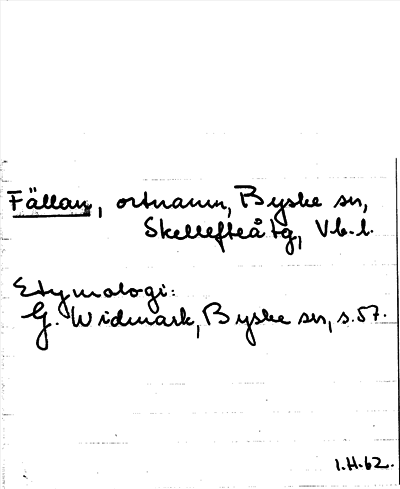 Fällan, ortnamn, Byske sn,
Skellefteå tg, V.b.l.
Etymologi:
G. Widmark, Byske sn, s.57.
I.H.62.